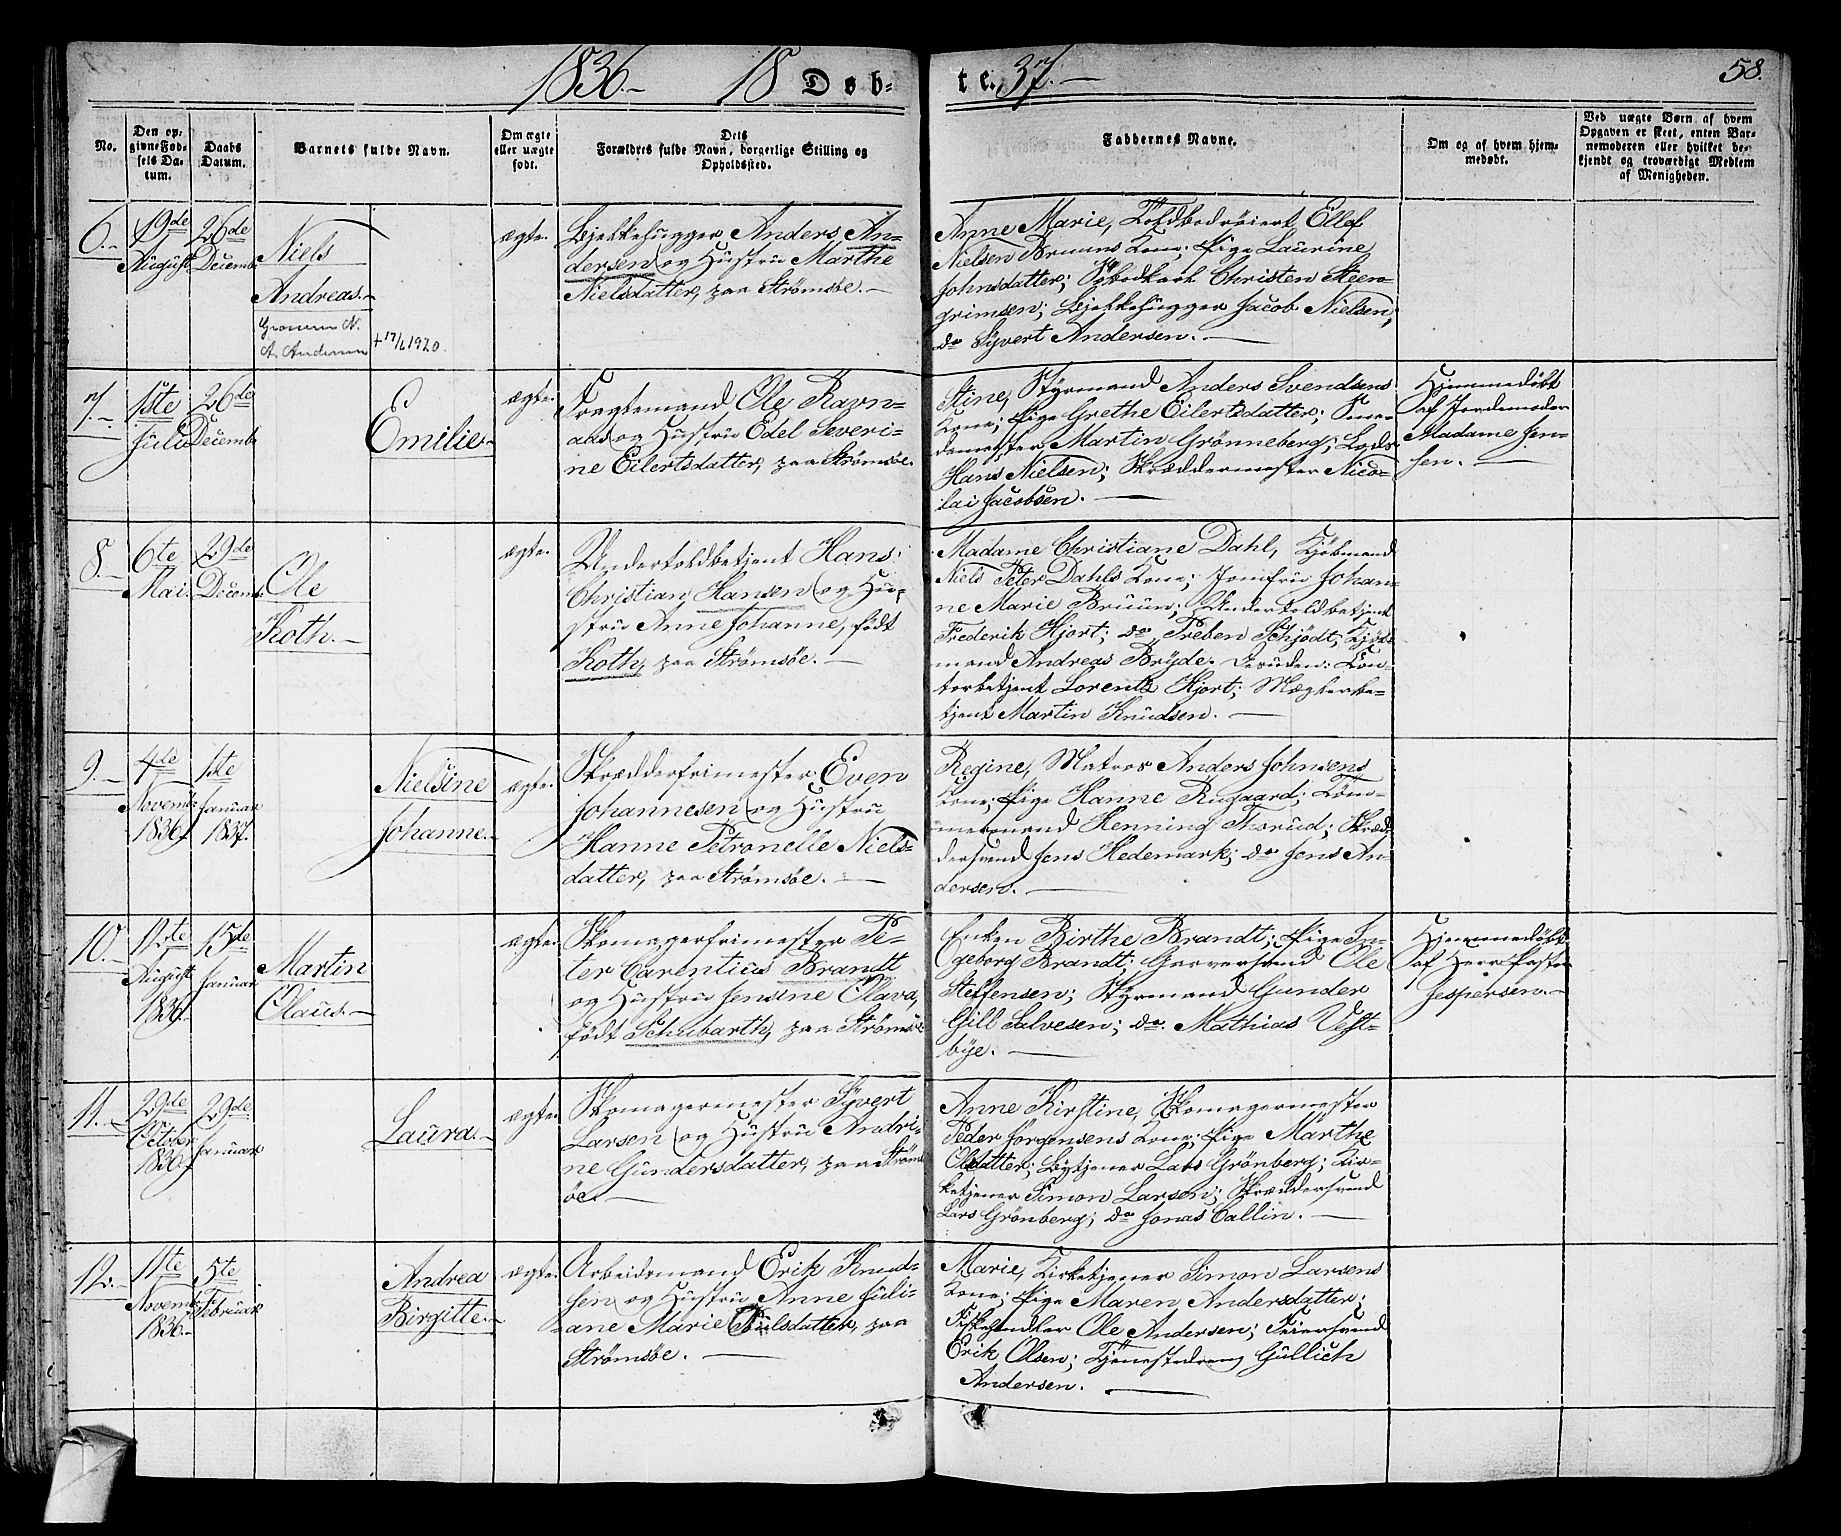 1836.- 18 Døb-
te. 37.-
58.
No.
Den op-
givne Fød-
sels Da-
tum.
Daabs
Datum.
Barnets fulde Navn.
Om ægte
eller uægte
født.
Dets
Forældres fulde Navn, borgerlige Stilling og
Opholdssted.
Faddernes Navne.
Om og af hvem hjem-
medøbt.
Ved uægte Børn af hvem
Opgaven er skeet, enten Bar-
nemoderen eller hvilket be-
kjendt og troværdigt Medlem
af Menigheden.
6.-
19de
August
26de
Decemb.
Niels
Andreas.-
N.
A. Andersen
+ 17/6 1920.
ægte.
Bjelkehugger Anders An-
dersen og Hustru Marthe
Nielsdatter, paa Strømsøe.-
Anne Marie, Ellef
Nielsen Bruuns Kone; Pige Laurine
Johnsdatter; Christen Steen-
grimsen; Bjelkehugger Jacob Nielsen;
do Syvert Andersen.-
7.-
1ste
Juli
26de
Decemb.
Emilie.-
ægte.
Fragtemand Ole Ravn-
aas og Hustru Edel Severi-
ne Eilertsdatter, paa Strømsøe.
Stine, Styrmand Anders Svendsens
Kone; Pige Grethe Eilertsdatter;
Martin Grønneberg; Lods
Hans Nielsen; Skræddermester Nico-
lai Jacobsen.-
Hjemmedøbt
af Jordemoder
Madame Jen-
sen.-
8.-
6te
Mai.
29de
Decemb.
Ole
Koth.-
ægte.
Undertoldbetjent Hans
Christian Hansen og Hu-
stru Anne Johanne, født
Koth, paa Strømsøe.-
Madame Christiane Dahl, Kjøbmand
Niels Peter Dahls Kone; Jomfru Johan-
ne Marie Bruun; Undertoldbetjent
Frederik Hjort; do Preben Schjödt, Kjøb-
mand Andreas Bryde. Desuden: Con-
torbetjent Lorentz Hjort; Mæglerbe-
tjent Martin Knudsen.-
9.-
4de
Novemb.
1836.
1ste
Januar
1837.
Nielsine
Johanne.-
ægte.
Skrædderfrimester Even
Johannesen og Hustru
Hanne Petronelle Niels-
datter, paa Strømsøe.-
Regine, Matros Anders Johnsens
Kone; Pige Hanne Rugaard; Töm-
mermand Henning Thorud; Skræd-
dersvend Jens Hedemark; do Jens An-
dersen.-
10.-
12te
August
1836.
15de
Januar
Martin
Claus.-
ægte.
Skomagerfrimester Pe-
ter Carentius Brandt
og Hustru Jensine Olava,
født Schubarth, paa Strømsøe
Enken Birthe Brandt; Pige In-
geborg Brandt; Garversvend Ole
Steffensen; Styrmand Gunder
Gill Salvesen; do. Mathias Vest-
bye.-
Hjemmedøbt
af Herr Pastor
Jespersen.-
11.-
29de
October
1836.
29de
Januar
Laura.-
ægte.
Skomagermester Syvert
Larsen og Hustru Andri-
ne Gundersdatter, paa Strøms-
øe.-
Anne Kirstine, Skomagermester
Peder Jørgensens Kone; Pige Marthe
Olsdatter; Bytjener Lars Grönberg; Kir-
ketjener Simon Larsen; Skræddersvend
Lars Grönberg; do Jonas Callin.-
12.-
11te
Novemb.
1836.-
5te
Februar
Andrea
Birgitte.-
ægte.
Arbeidsmand Erik Knud-
sen og Hustru Anne Juli-
ane Marie Pålsdatter, paa
Strømsøe.-
Marie, Kirketjener Simon Larsens
Kone; Pige Maren Andersdatter;
Fiskehandler Ole Andersen; Feiersvend
Erik Olsen; Tjenestedreng Gullich
Andersen.-